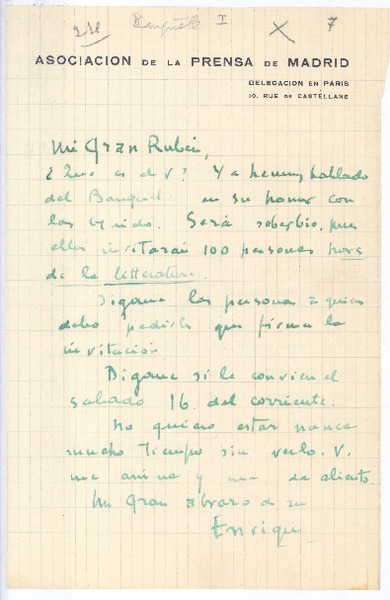 242 Banquete I 7
ASOCIACION DE LA PRENSA DE MADRID
DELEGACION EN PARIS
10. RUE DE CASTELLANE
Mi Gran Rubén,
¿Que es de V? Ya hemos hablado
del Banquete en su honor con
los Guido. Será soberbio, pues
ellos invitarán 100 personas hors
de la littérature.
Digame las personas a quien
debo pedirle que firmen la
invitación
Digame si le conviene el
sabado 16 del corriente.
No quiero estar nunca
mucho tiempo sin verlo. V.
me anima y me da aliento.
Un Gran abrazo de su
Enrique